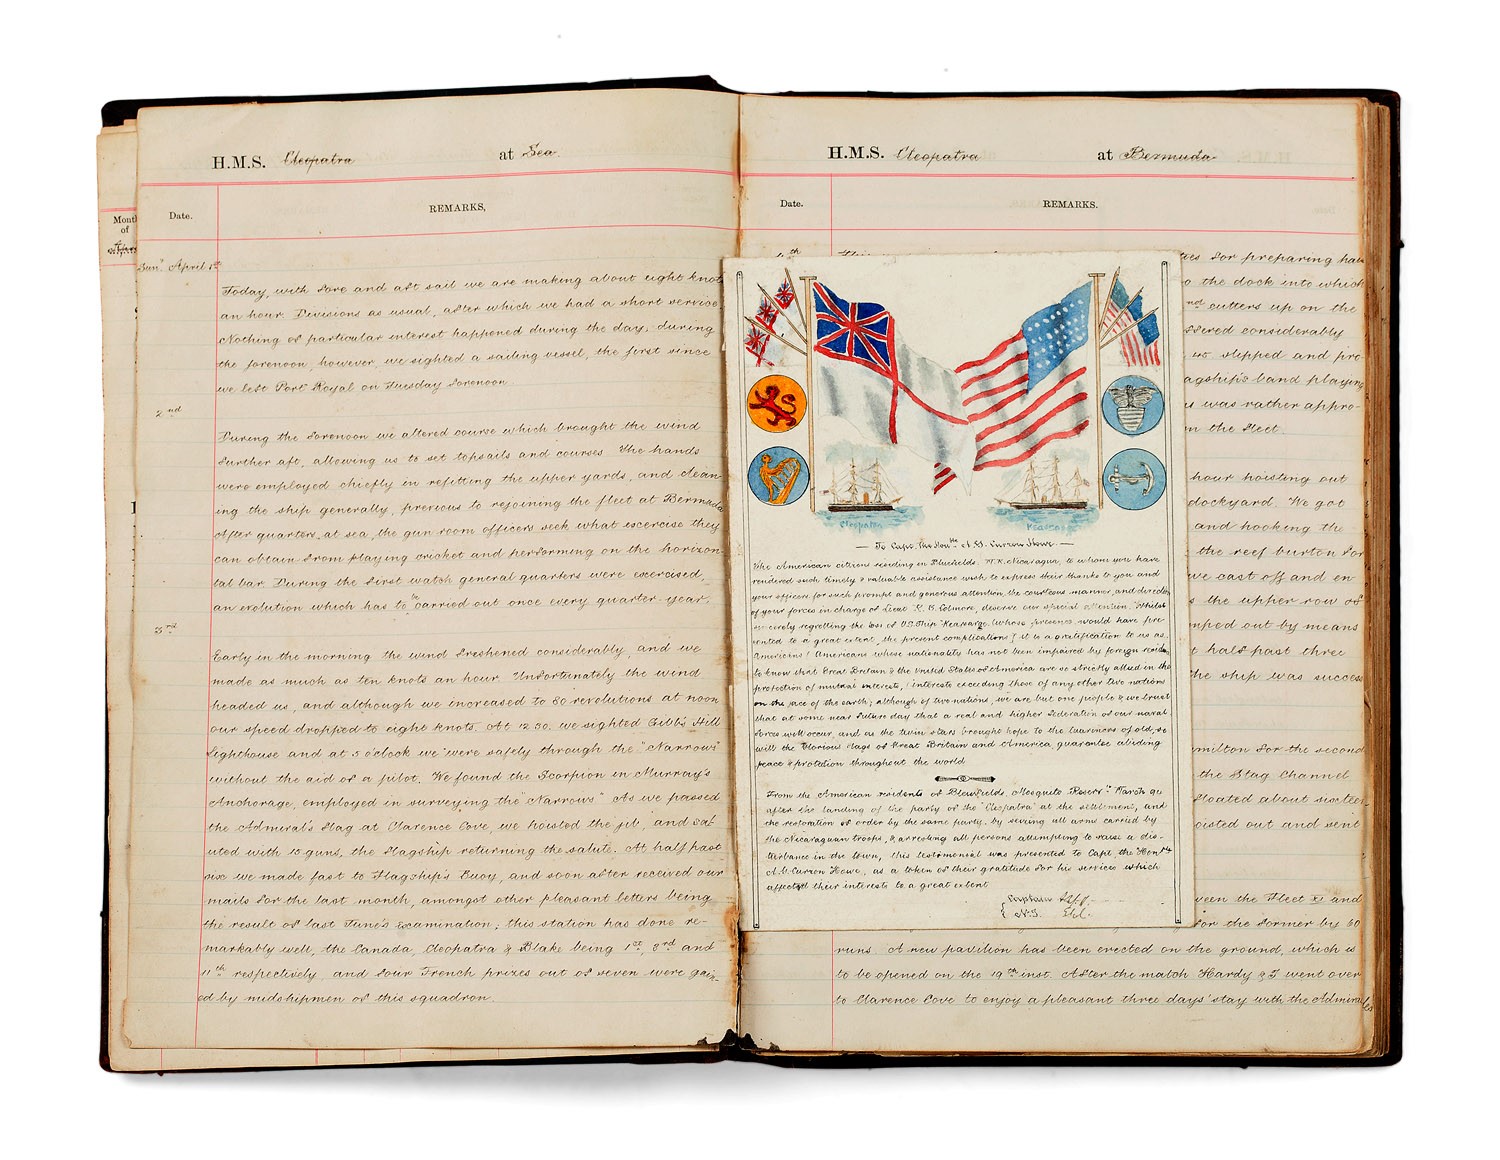 H.M.S. Cleopatra at Sea.
Month
of
Date.
REMARKS,
Sun. April 1st
Today, with fore and aft sail we are making about eight knots
an hour. Divisions as usual, after which we had a short service
Nothing of particular interest happened during the day; during
the forenoon, however, we sighted a sailing vessel, the first since
we left Port Royal on Tuesday forenoon
2nd
During the forenoon we altered course which brought the wind
further aft, allowing us to set topsails and courses. The hands
were employed chiefly in refitting the upper yards, and clean-
ing the ship generally, previous to rejoining the fleet at Bermuda
After quarters, at sea, the gun room officers seek what exercise they
can obtain from playing cricket and performing on the horizon-
tal bar. During the first watch general quarters were exercised,
an evolution which has to be carried out once every quarter-year.
3rd
Early in the morning the wind freshened considerably, and we
made as much as ten knots an hour. Unfortunately the wind
headed us, and although we increased to 80 revolutions at noon
our speed dropped to eight knots. At 12.30. we sighted Gibb's Hill
Lighthouse and at 5 o'clock we were safely through the "Narrows"
without the aid of a pilot. We found the Scorpion in Murray's
Anchorage, employed in surveying the "Narrows" As we passed
the Admiral's flag at Clarence Cove, we hoisted the jib, and sal-
uted with 15 guns, the flagship returning the salute. At half past
six we made fast to Flagship's Buoy, and soon after received our
mails for the last month, amongst other pleasant letters being
the result of last June's examination; this station has done re-
markably well, the Canada, Cleopatra & Blake being 1st, 3rd and
11th respectively, and four French prizes out of seven were gain-
ed by midshipmen of this squadron.
H.M.S. Cleopatra at Bermuda
Date.
REMARKS.
4th
for preparing
the dock into which
cutters up on the
considerably
slipped and pro-
flagship's band playing
was rather appro-
in the fleet.
hour hoisting out
dockyard. We got
and hooking the
the reef burton for
we cast off and en
the upper row of
out by means
half past three
the ship was success
Hamilton for the second
the Stag Channel
floated about sixteen
hoisted out and sent
between the Fleet XI and
for the former by 60
runs. A new pavilion has been erected on the ground, which is
to be opened on the 19th inst. After the match Hardy & I went over
to Clarence Cove to enjoy a pleasant three days' stay with the Admirals
Cleopatra
Kearsarge
— To Capt. the Honble A.G. Curzon Howe. —
The American citizens residing in Bluefields. M.R. Nicaragua, to whom you have
rendered such timely & valuable assistance wish to express their thanks to you and
your officers for such prompt and generous attention, the courteous manner, and direction
of your forces in charge of Lieut R. B. Colmore, deserve our special attention. Whilst
sincerely regretting the loss of U.S. Ship "Kearsarge (whose presence would have pre-
vented to a great extent, the present complications) it is a gratification to us as
Americans! Americans whose nationality has not been impaired by foreign
to know that Great Britain & the United States of America are so strictly allied in the
protection of mutual interests, (interests exceeding those of any other two nations
on the face of the earth; although of two nations, we are but one people & we trust
that at some near future day that a real and higher federation of our naval
forces will occur, and as the twin stars brought hope to the of old, so
will the Glorious flags of Great Britain and America, guarantee abiding
peace & protection throughout the world
From the American residents of Bluefields, Mosquito Reserve. March 94
after the landing of the party of the "Cleopatra" at the settlement, and
the restoration of order by the same party. by seizing all arms carried by
the Nicaraguan troops, & arresting all persons attempting to raise a dis-
turbance in the town, this testimonial was presented to Capt. the Honble
A.G. Curzon Howe, as a token of their gratitude for his services which
affected their interests to a great extent
Captain
N.I.